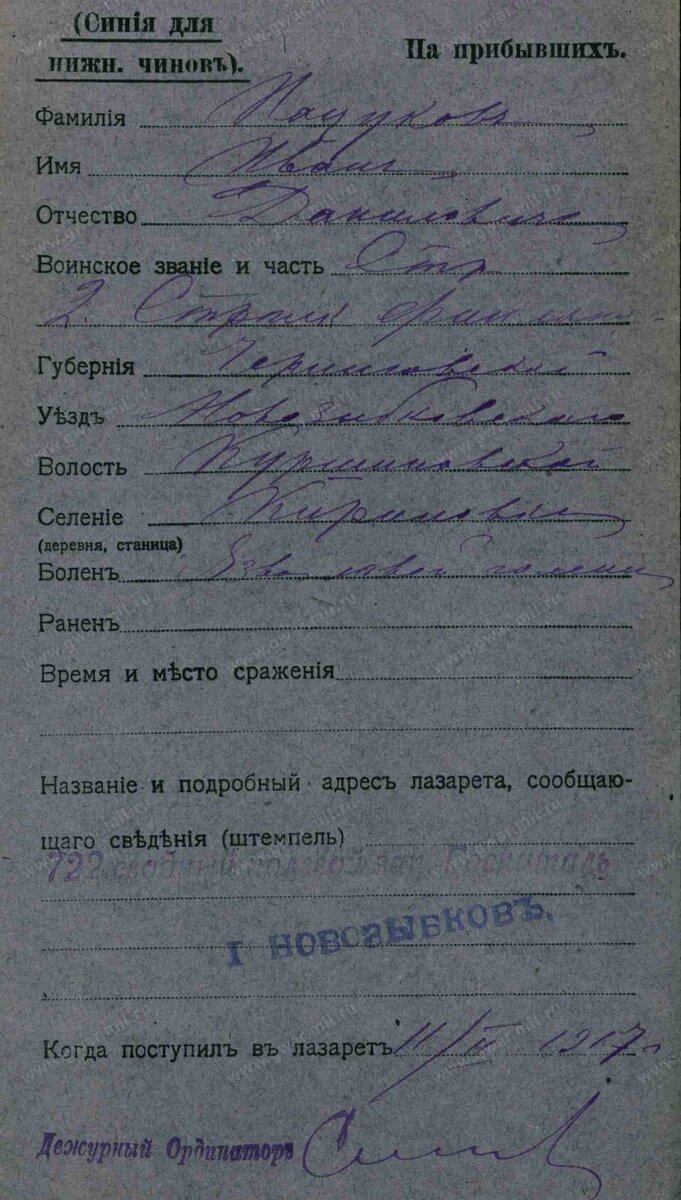 (Синія для
нижн. чиновъ).
На прибывшихъ.
Фамилія Пацуковъ
Имя Иванъ
Отчество Даниловичъ
Воинское званіе и часть Стр
2 Стрѣлк
Губернія Черниговской
Уѣздъ Новозыбковскаго
Волость
Селеніе
(деревня, станица)
Боленъ Язва левой голени
Раненъ
Время и мѣсто сраженія
Названіе и подробный адресъ лазарета, сообщаю-
щаго свѣдѣнія (штемпель)
722 сводный полевой зап. Госпиталь
I НОВОЗЫБКОВЪ.
Когда поступилъ въ лазаретъ 11/II 1917 г
Дежурный Ординаторъ